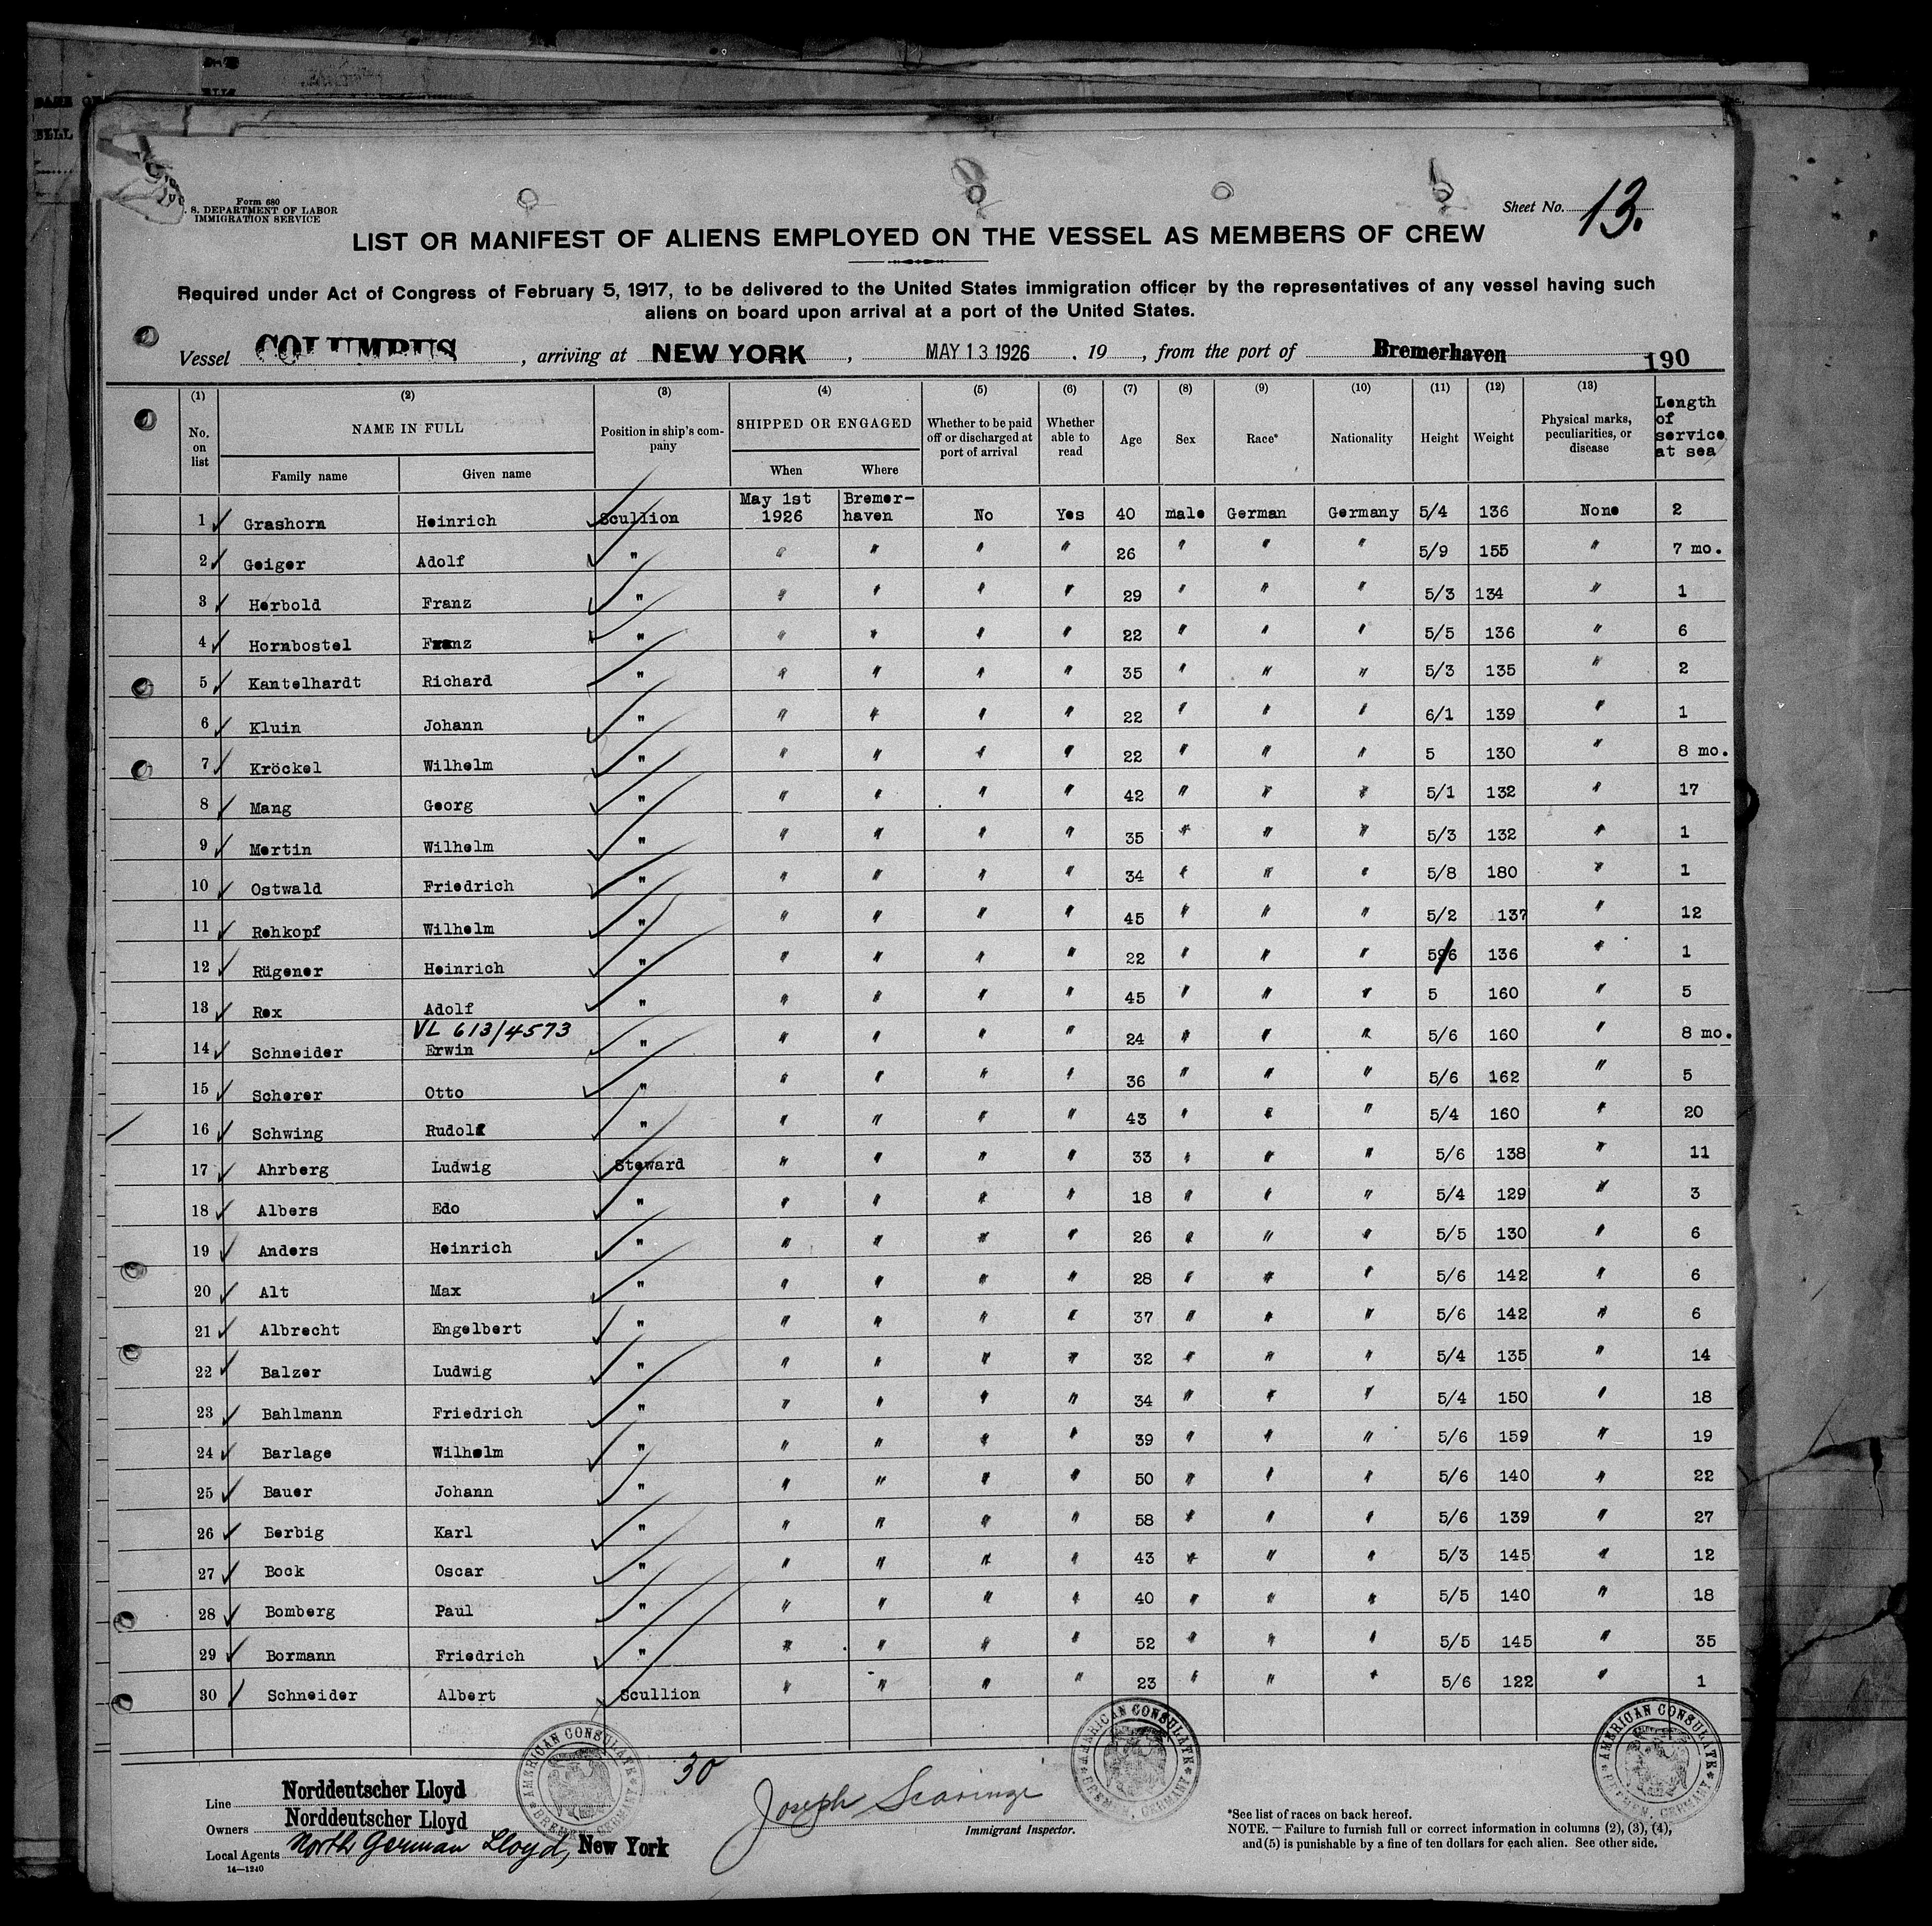 Form 680
S. DEPARTMENT OF LABOR
IMMIGRATION SERVICE
Sheet No. 13.
LIST OR MANIFEST OF ALIENS EMPLOYED ON THE VESSEL AS MEMBERS OF CREW
Required under Act of Congress of February 5, 1917, to be delivered to the United States immigration officer by the representatives of any vessel having such
aliens on board upon arrival at a port of the United States.
Vessel COLUMBUS, arriving at NEW YORK, MAY 13 1926, 19 , from the port of Bremerhaven 190
(1) (2) (3) (4) (5) (6) (7) (8) (9) (10) (11) (12) (13)
No. on list NAME IN FULL Position in ship's company SHIPPED OR ENGAGED Whether to be paid off or discharged at port of arrival Whether able to read Age Sex Race* Nationality Height Weight Physical marks, peculiarities, or disease Length of service at sea
Family name Given name When Where
1 Grashorn Heinrich Scullion May 1st 1926 Bremer-haven No Yes 40 male German Germany 5/4 136 None 2
2 Geiger Adolf " " " " " 26 " " " 5/9 155 " 7 mo.
3 Herbold Franz " " " " " 29 " " " 5/3 134 " 1
4 Hornbostel Franz " " " " " 22 " " " 5/5 136 " 6
5 Kantelhardt Richard " " " " " 35 " " " 5/3 135 " 2
6 Kluin Johann " " " " " 22 " " " 6/1 139 " 1
7 Kröckel Wilhelm " " " " " 22 " " " 5 130 " 8 mo.
8 Mang Georg " " " " " 42 " " " 5/1 132 " 17
9 Mertin Wilhelm " " " " " 35 " " " 5/3 132 " 1
10 Ostwald Friedrich " " " " " 34 " " " 5/8 180 " 1
11 Rehkopf Wilhelm " " " " " 45 " " " 5/2 137 " 12
12 Rügener Heinrich " " " " " 22 " " " 5/6 136 " 1
13 Rex Adolf " " " " " 45 " " " 5 160 " 5
VL 613/4573
14 Schneider Erwin " " " " " 24 " " " 5/6 160 " 8 mo.
15 Scherer Otto " " " " " 36 " " " 5/6 162 " 5
16 Schwing Rudolf " " " " " 43 " " " 5/4 160 " 20
17 Ahrberg Ludwig Steward " " " " 33 " " " 5/6 138 " 11
18 Albers Edo " " " " " 18 " " " 5/4 129 " 3
19 Anders Heinrich " " " " " 26 " " " 5/5 130 " 6
20 Alt Max " " " " " 28 " " " 5/6 142 " 6
21 Albrecht Engelbert " " " " " 37 " " " 5/6 142 " 6
22 Balzer Ludwig " " " " " 32 " " " 5/4 135 " 14
23 Bahlmann Friedrich " " " " " 34 " " " 5/4 150 " 18
24 Barlage Wilhelm " " " " " 39 " " " 5/6 159 " 19
25 Bauer Johann " " " " " 50 " " " 5/6 140 " 22
26 Berbig Karl " " " " " 58 " " " 5/6 139 " 27
27 Bock Oscar " " " " " 43 " " " 5/3 145 " 12
28 Bomberg Paul " " " " " 40 " " " 5/5 140 " 18
29 Bormann Friedrich " " " " " 52 " " " 5/5 145 " 35
30 Schneider Albert Scullion " " " " 23 " " " 5/6 122 " 1
30
AMERICAN CONSULATE BREMEN, GERMANY
AMERICAN CONSULATE BREMEN, GERMANY
AMERICAN CONSULATE BREMEN, GERMANY
Line Norddeutscher Lloyd
Owners Norddeutscher Lloyd
Local Agents North German Lloyd, New York
14—1240
Joseph Scaringi
Immigrant Inspector.
*See list of races on back hereof.
NOTE. — Failure to furnish full or correct information in columns (2), (3), (4),
and (5) is punishable by a fine of ten dollars for each alien. See other side.